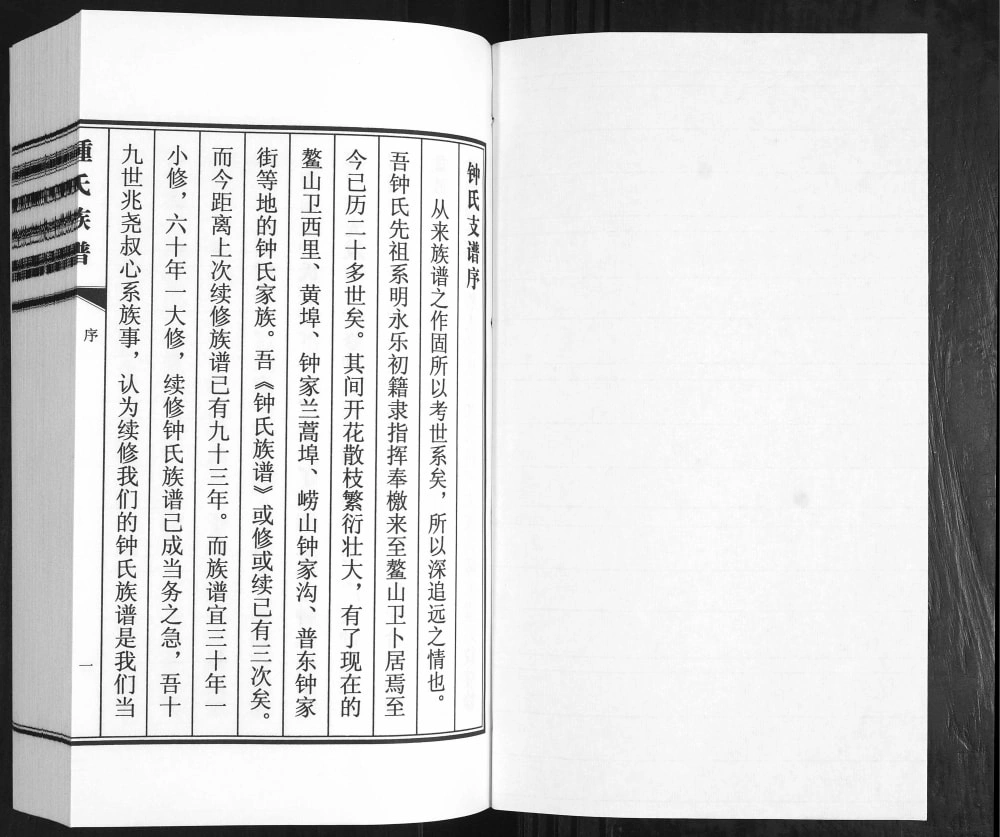 钟氏支谱序
从来族谱之作固所以考世系矣，所以深追远之情也。
吾钟氏先祖系明永乐初籍隶指挥奉檄来至鳌山卫卜居焉至
今已历二十多世矣。其间开花散枝繁衍壮大，有了现在的
鳌山卫西里、黄埠、钟家兰蒿埠、崂山钟家沟、普东钟家
街等地的钟氏家族。吾《钟氏族谱》或修或续已有三次矣。
而今距离上次续修族谱已有九十三年。而族谱宜三十年一
小修，六十年一大修，续修钟氏族谱已成当务之急，吾十
九世兆尧叔心系族事，认为续修我们的钟氏族谱是我们当
氏族谱
序
一